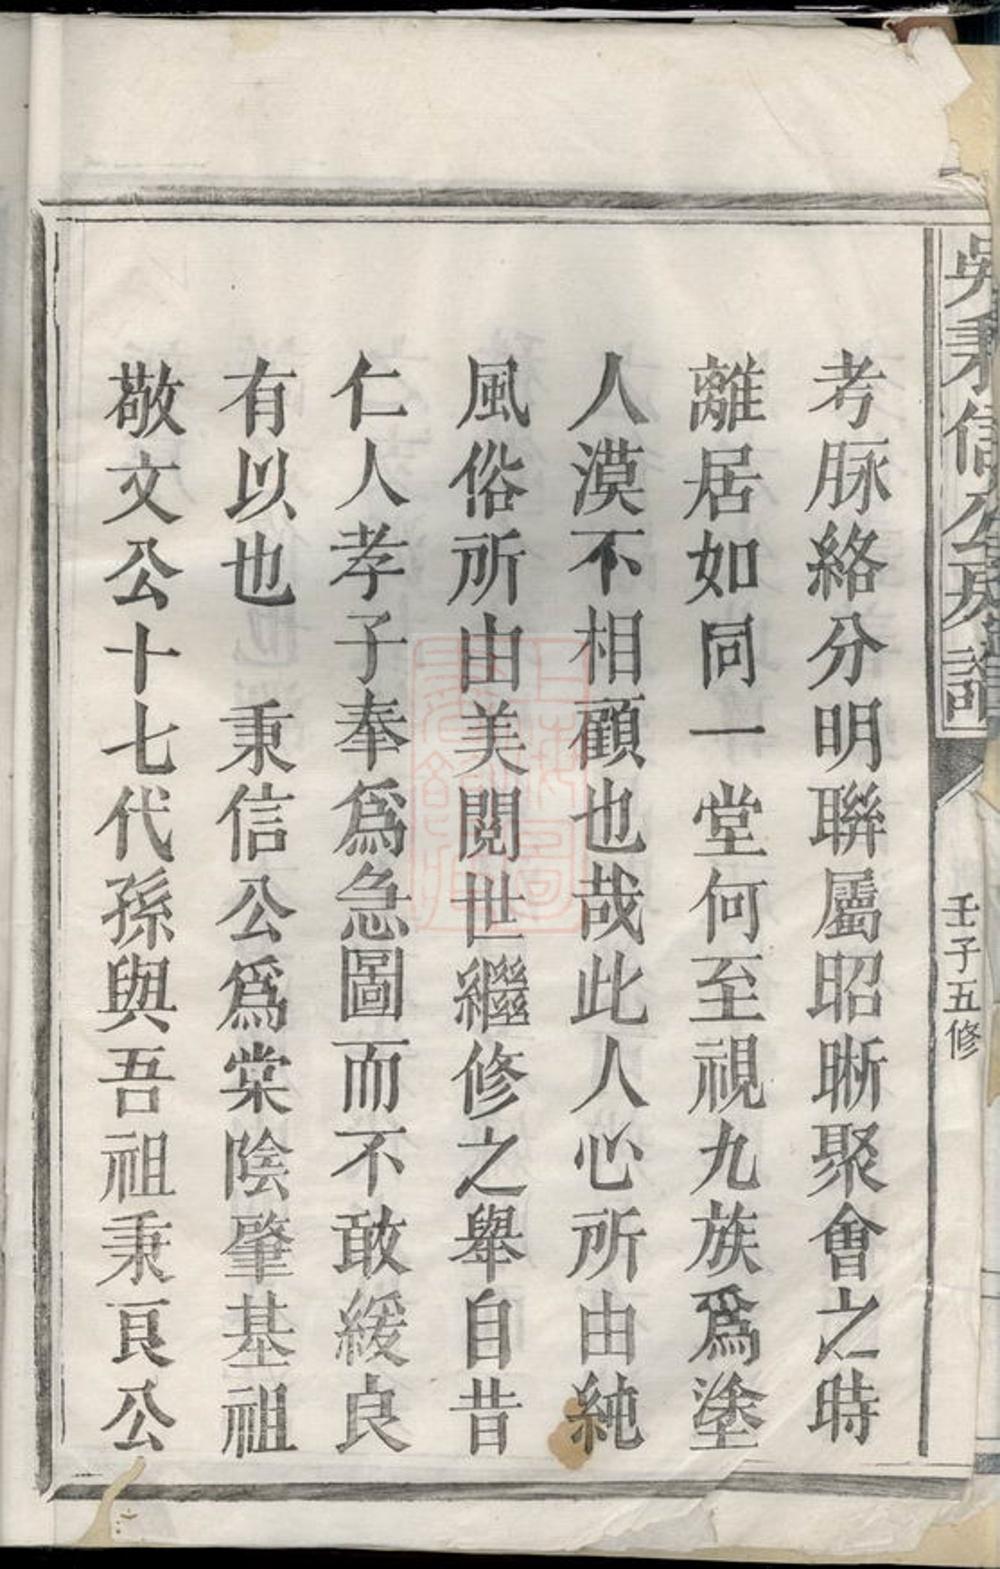 吳秉信公房譜
壬子五修
考脉絡分明聯屬昭晰聚會之時
離居如同一堂何至視九族爲塗
人漠不相顧也哉此人心所由純
風俗所由美閱世繼修之舉自昔
仁人孝子奉爲急圖而不敢緩良
有以也 秉信公爲棠陰肇基祖
敬文公十七代孫與吾祖秉良公